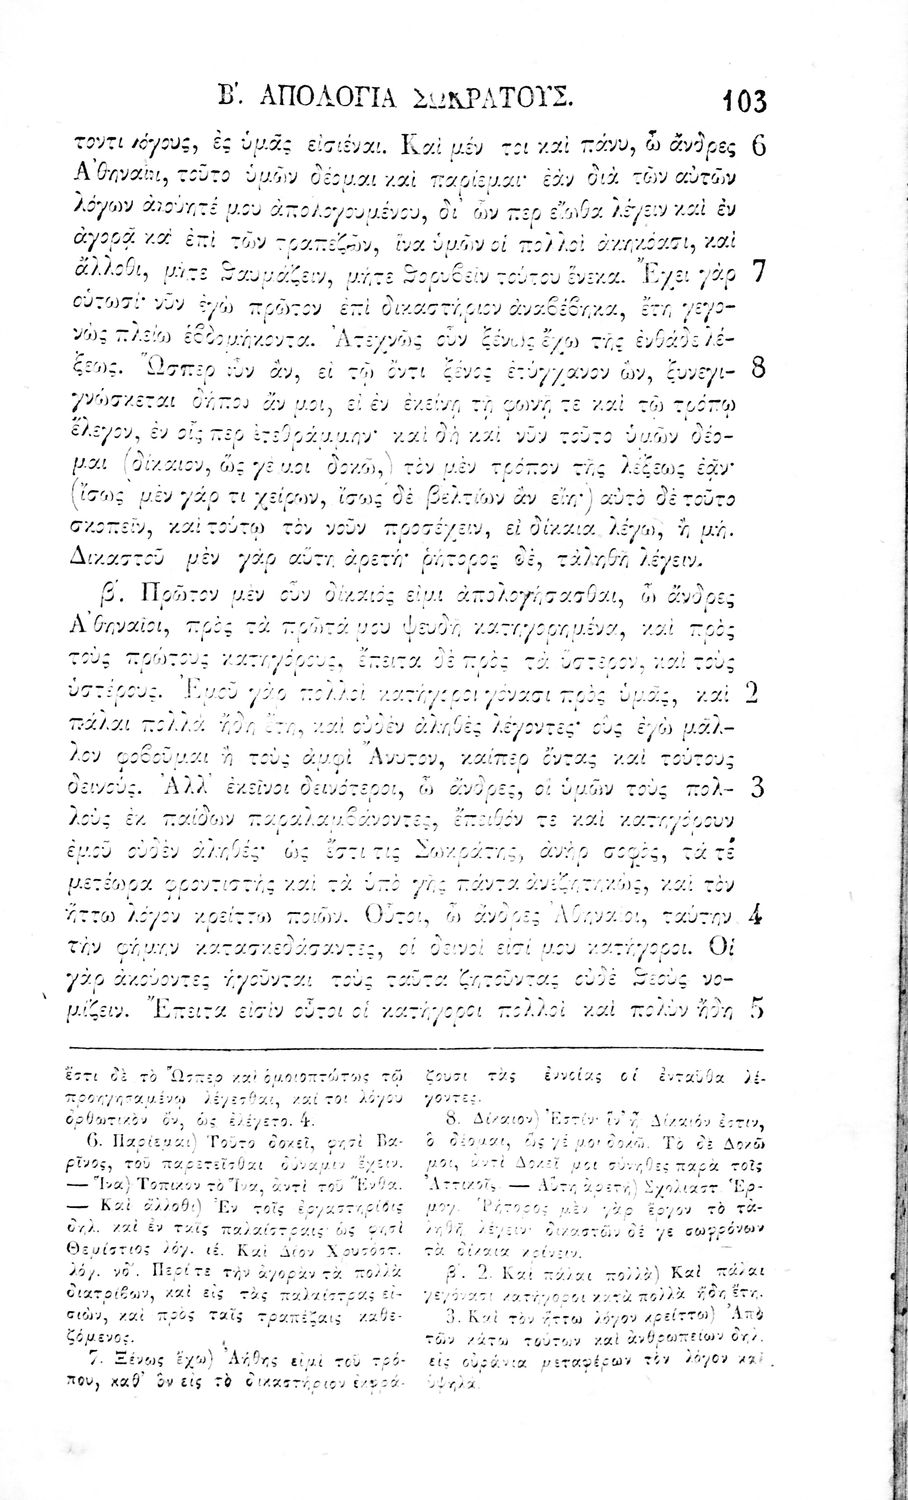 Β΄. ΑΠΟΛΟΓΙΑ ΣΩΚΡΑΤΟΥΣ. 103
τοντι λόγους, ἐς ὑμᾶς εἰσιέναι. Καὶ μέν τοι καὶ πάνυ, ὦ ἄνδρες 6
Ἀθηναῖοι, τοῦτο ὑμῶν δέομαι καὶ παρίεμαι· ἐὰν διὰ τῶν αὐτῶν
λόγων ἀκούητέ μου ἀπολογουμένου, δι᾽ ὧν περ εἴωθα λέγειν καὶ ἐν
ἀγορᾷ καὶ ἐπὶ τῶν τραπεζῶν, ἵνα ὑμῶν οἱ πολλοὶ ἀκηκόασι, καὶ
ἄλλοθι, μήτε θαυμάζειν, μήτε θορυβεῖν τούτου ἕνεκα. Ἔχει γὰρ 7
οὑτωσί· νῦν ἐγὼ πρῶτον ἐπὶ δικαστήριον ἀναβέβηκα, ἔτη γεγο-
νὼς πλείω ἑβδομήκοντα. Ἀτεχνῶς οὖν ξένως ἔχω τῆς ἐνθάδε λέ-
ξεως. Ὥσπερ οὖν ἂν, εἰ τῷ ὄντι ξένος ἐτύγχανον ὢν, ξυνεγι- 8
γνώσκεται δήπου ἄν μοι, εἰ ἐν ἐκείνῃ τῇ φωνῇ τε καὶ τῷ τρόπῳ
ἔλεγον, ἐν οἷς περ ἐτεθράμμην· καὶ δὴ καὶ νῦν τοῦτο ὑμῶν δέο-
μαι (δίκαιον, ὥς γέ μοι δοκῶ,) τὸν μὲν τρόπον τῆς λέξεως ἐᾷν·
(ἴσως μὲν γάρ τι χείρων, ἴσως δὲ βελτίων ἂν εἴη·) αὐτὸ δὲ τοῦτο
σκοπεῖν, καὶ τούτῳ τὸν νοῦν προσέχειν, εἰ δίκαια λέγω, ἢ μή.
Δικαστοῦ μὲν γὰρ αὕτη ἀρετή· ῥήτορος δὲ, τἀληθῆ λέγειν.
β΄. Πρῶτον μὲν οὖν δίκαιός εἰμι ἀπολογήσασθαι, ὦ ἄνδρες
Ἀθηναῖοι, πρὸς τὰ πρῶτά μου ψευδῆ κατηγορημένα, καὶ πρὸς
τοὺς πρώτους κατηγόρους, ἔπειτα δὲ πρὸς τὰ ὕστερον, καὶ τοὺς
ὑστέρους. Ἐμοῦ γὰρ πολλοὶ κατήγοροι γόνασι πρὸς ὑμᾶς, καὶ 2
πάλαι πολλὰ ἤδη ἔτη, καὶ οὐδὲν ἀληθὲς λέγοντες· οὓς ἐγὼ μᾶλ-
λον φοβοῦμαι ἢ τοὺς ἀμφὶ Ἄνυτον, καίπερ ὄντας καὶ τούτους
δεινούς. Ἀλλ᾽ ἐκεῖνοι δεινότεροι, ὦ ἄνδρες, οἳ ὑμῶν τοὺς πολ- 3
λοὺς ἐκ παίδων παραλαμβάνοντες, ἔπειθόν τε καὶ κατηγόρουν
ἐμοῦ οὐδὲν ἀληθές· ὡς ἔστι τις Σωκράτης, ἀνὴρ σοφὸς, τά τε
μετέωρα φροντιστὴς καὶ τὰ ὑπὸ γῆς πάντα ἀνεζητηκὼς, καὶ τὸν
ἥττω λόγον κρείττω ποιῶν. Οὗτοι, ὦ ἄνδρες Ἀθηναῖοι, ταύτην 4
τὴν φήμην κατασκεδάσαντες, οἱ δεινοὶ εἰσί μου κατήγοροι. Οἱ
γὰρ ἀκούοντες ἡγοῦνται τοὺς ταῦτα ζητοῦντας οὐδὲ θεοὺς νο-
μίζειν. Ἔπειτα εἰσὶν οὗτοι οἱ κατήγοροι πολλοὶ καὶ πολὺν ἤδη 5
ἔστι δὲ τὸ Ὥσπερ καὶ ὁμοιοπτώτως τῷ
προηγησαμένῳ λέγεσθαι, καί τοι λόγου
ὀρθωτικὸν ὄν, ὡς ἐλέγετο. 4.
6. Παρίεμαι) Τοῦτο δοκεῖ, φησὶ Βα-
ρῖνος, τοῦ παρετεῖσθαι δύναμιν ἔχειν.
— Ἵνα) Τοπικὸν τὸ Ἵνα, ἀντὶ τοῦ Ἔνθα.
— Καὶ ἄλλοθι) Ἐν τοῖς ἐργαστηρίοις
δηλ. καὶ ἐν ταῖς παλαίστραις· ὡς φησὶ
Θεμίστιος λόγ. ιέ. Καὶ Δίον Χρυσόστ.
λόγ. νδ΄. Περί τε τὴν ἀγορὰν τὰ πολλὰ
διατρίβων, καὶ εἰς τὰς παλαίστρας εἰ-
σιὼν, καὶ πρὸς ταῖς τραπέζαις καθε-
ζόμενος.
7. Ξένως ἔχω) Ἀήθης εἰμὶ τοῦ τρό-
που, καθ᾽ ὃν εἰς τὸ δικαστήριον ἐκφρά-
ζουσι τὰς ἐννοίας οἱ ἐνταῦθα λέ-
γοντες.
8. Δίκαιον) Ἔστιν· ἵν᾽ ᾖ Δίκαιόν ἐστιν,
ὃ δέομαι, ὥς γέ μοι δοκῶ. Τὸ δὲ Δοκῶ
μοι, ἀντὶ Δοκεῖ μοι σύνηθες παρὰ τοῖς
Ἀττικοῖς. — Αὕτη ἀρετή) Σχολιαστ. Ἑρ-
μογ. Ῥήτορος μὲν γὰρ ἔργον τὸ τἀ-
ληθῆ λέγειν· δικαστῶν δέ γε σωφρόνων
τὰ δίκαια κρίνειν.
β΄. 2. Καὶ πάλαι πολλὰ) Καὶ πάλαι
γεγόνασι κατήγοροι κατὰ πολλὰ ἤδη ἔτη.
3. Καὶ τὸν ἥττω λόγον κρείττω) Ἀπὸ
τῶν κάτω τούτων καὶ ἀνθρωπείων δηλ.
εἰς οὐράνια μεταφέρων τὸν λόγον καὶ
ὑψηλά.